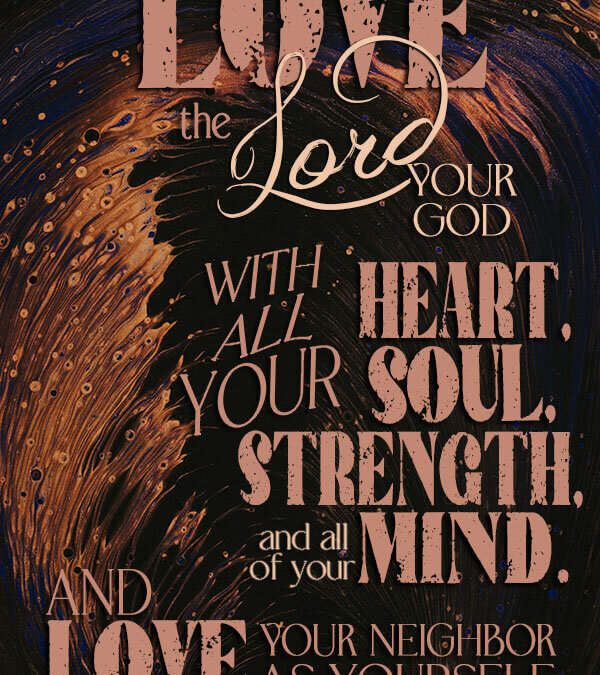 LOVE
the Lord YOUR
GOD
WITH ALL YOUR HEART,
SOUL,
STRENGTH,
and all of your MIND.
AND
LOVE YOUR NEIGHBOR
AS YOURSELF